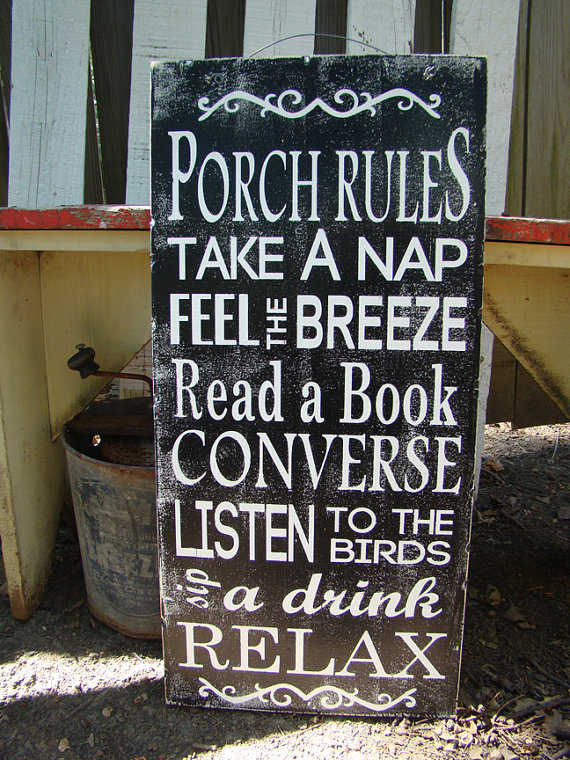 PORCH RULES
TAKE A NAP
FEEL THE BREEZE
Read a Book
CONVERSE
LISTEN TO THE BIRDS
sip a drink
RELAX